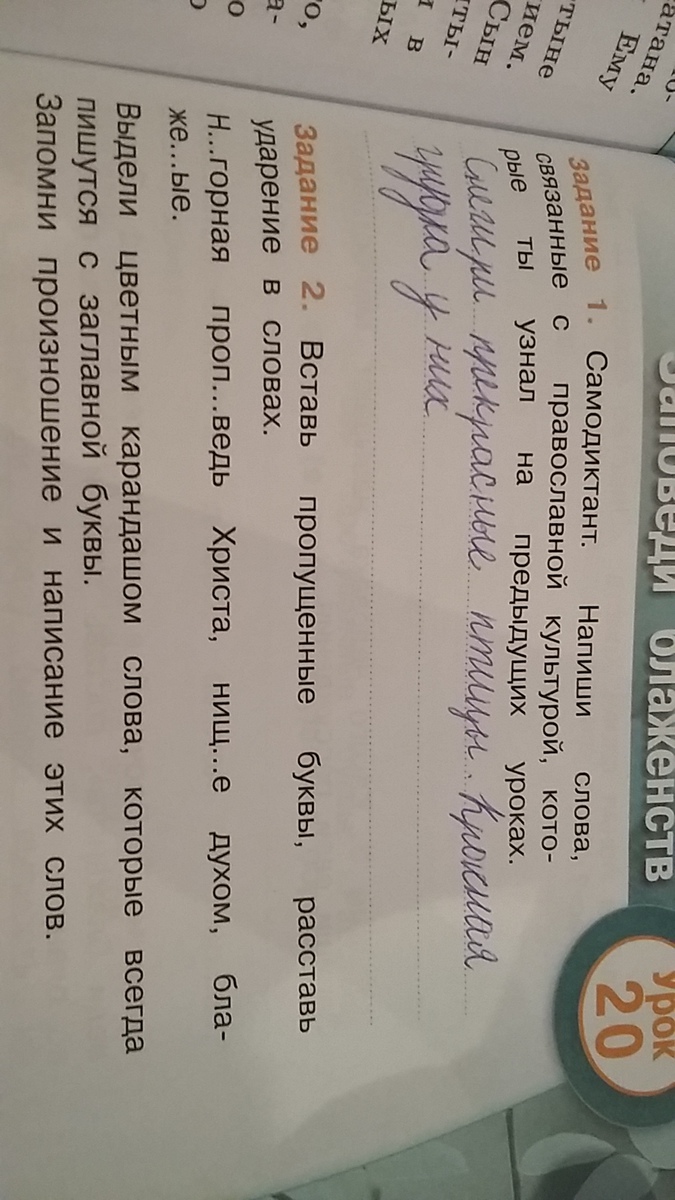 Заповеди блаженств
Урок
20
Задание 1. Самодиктант. Напиши слова,
связанные с православной культурой, кото-
рые ты узнал на предыдущих уроках.
Снегири прекрасные птицы. Красная
грудка у них
Задание 2. Вставь пропущенные буквы, расставь
ударение в словах.
Н...горная проп...ведь Христа, нищ...е духом, бла-
же...ые.
Выдели цветным карандашом слова, которые всегда
пишутся с заглавной буквы.
Запомни произношение и написание этих слов.
атана.
Ему
тыне
ием.
Сын
ты-
в
ых
о,
а-
го
о